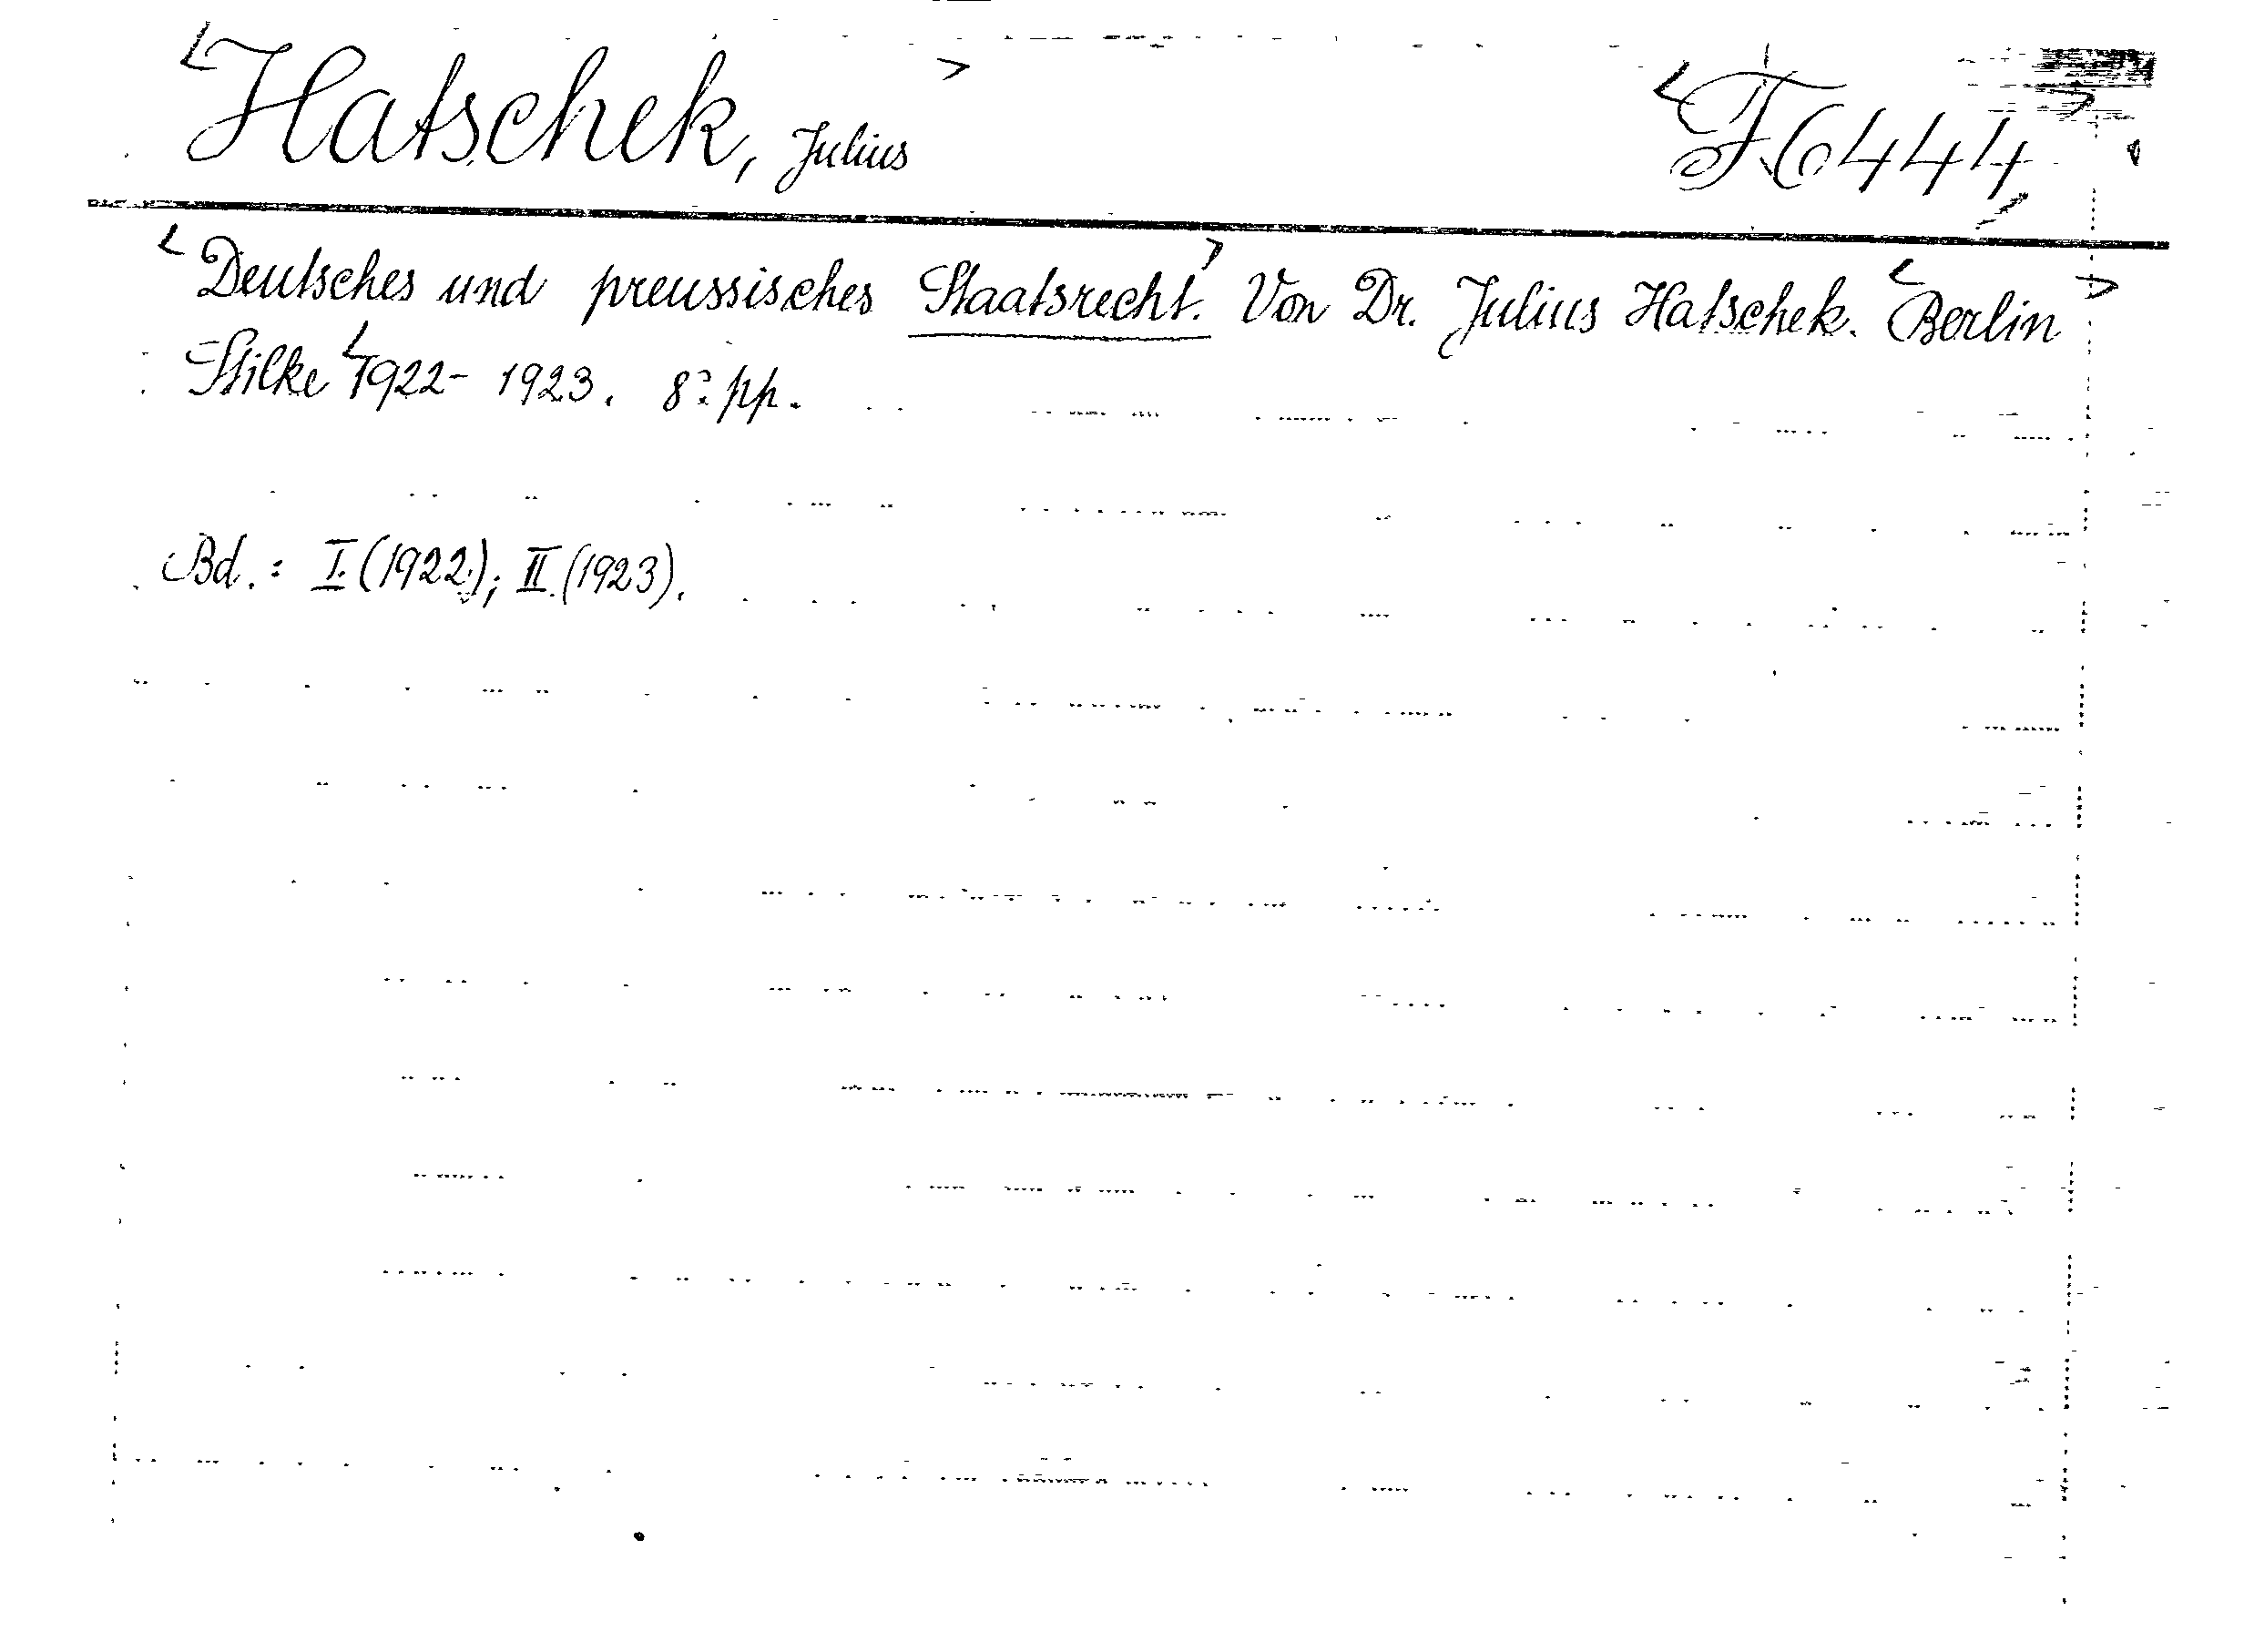 Hatschek, Julius F6444
Deutsches und preussisches Staatsrecht. Von Dr. Julius Hatschek. Berlin
Stilke 1922-1923. 8° pp.
Bd.: I. (1922); II. (1923).